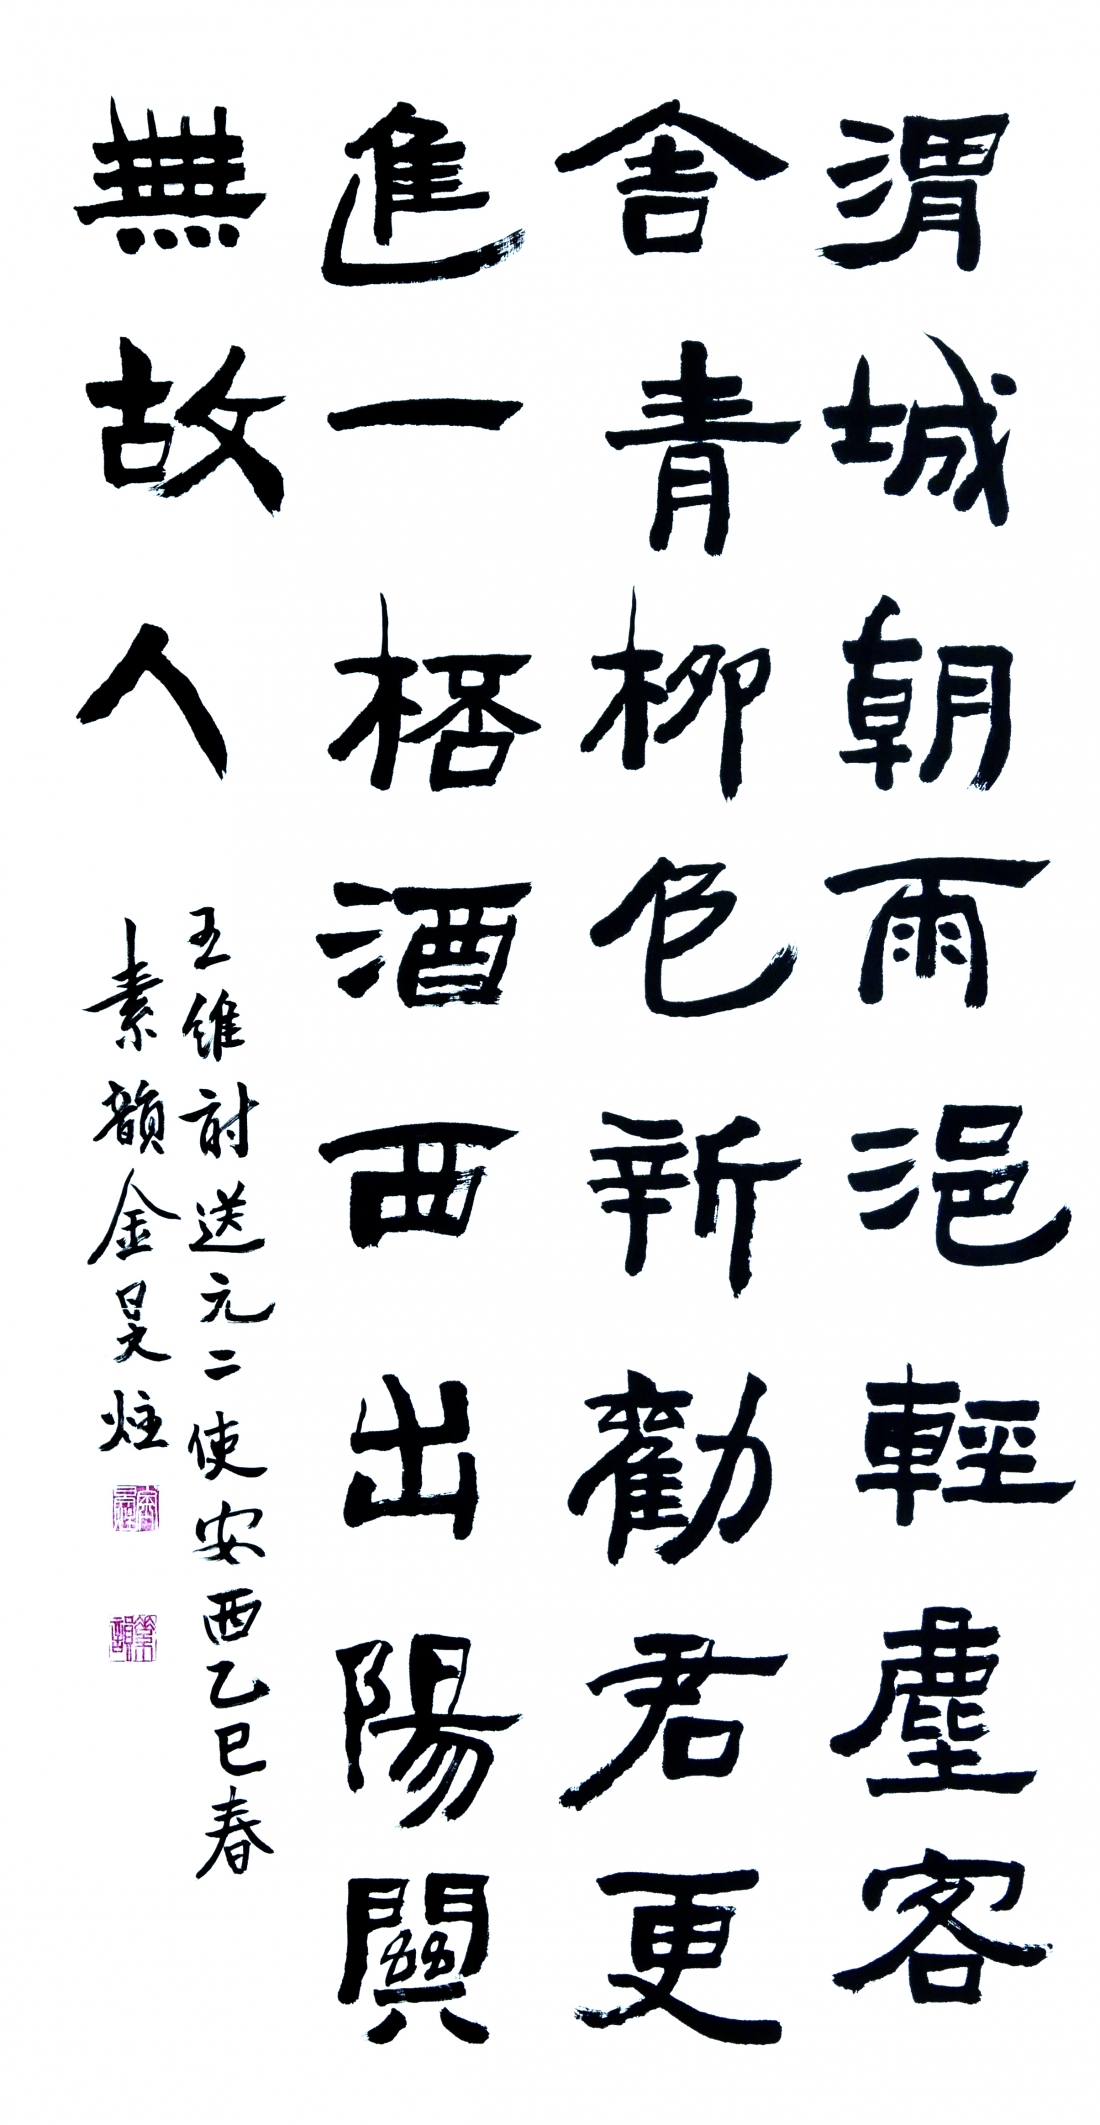 渭城朝雨浥輕塵客
舍青柳色新勸君更
進一桮酒西出陽關
無故人
王維詩送元二使安西乙巳春
素韻金昊炷